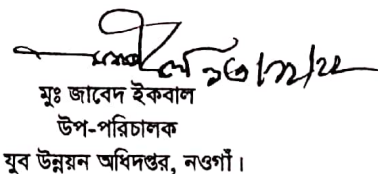 মুঃ জাবেদ ইকবাল
উপ-পরিচালক
যুব উন্নয়ন অধিদপ্তর, নওগাঁ।